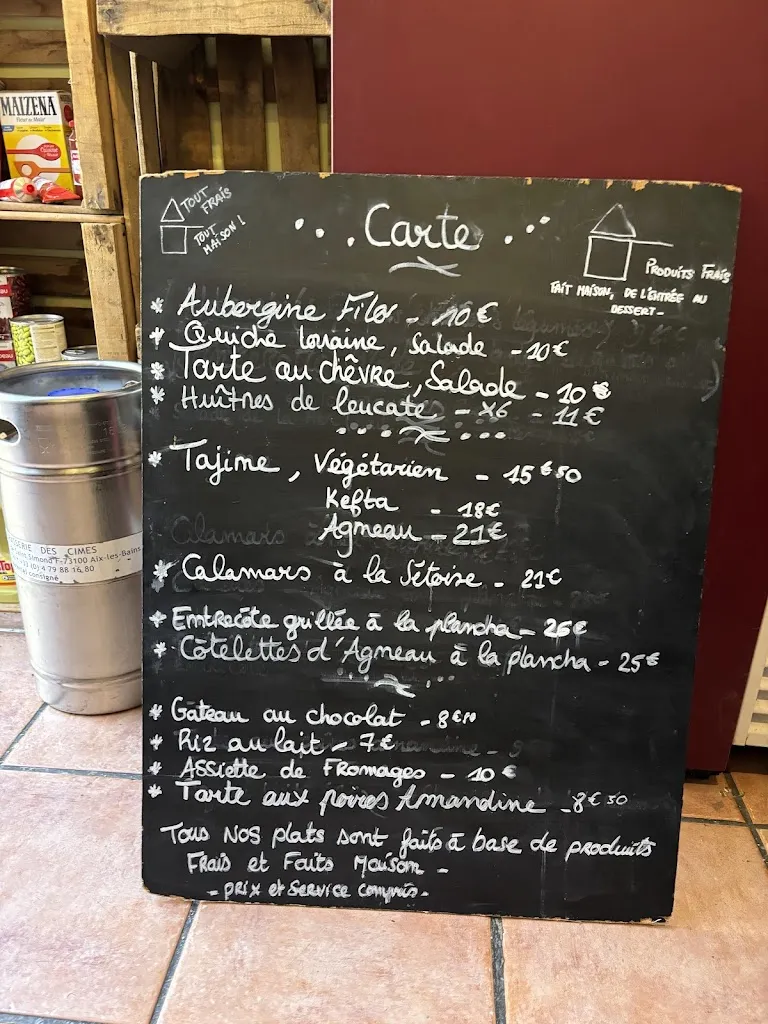 MAIZENA
TOUT FRAIS
TOUT MAISON !
Carte
PRODUITS FRAIS
FAIT MAISON, DE L'ENTRÉE AU
DESSERT -
* Aubergine Filo - 10€
* Quiche lorraine, Salade - 10€
* Tarte au chêvre, Salade - 10€
* Huîtres de leucate - X6 - 11€
* Tajine, Végétarien - 15€50
Kefta - 18€
Agneau - 21€
* Calamars à la Sétoise - 21€
* Entrecôte grillée à la plancha - 26€
* Côtelettes d'Agneau à la plancha - 25€
* Gâteau au chocolat - 8€
* Riz au lait - 7€
* Assiette de Fromages - 10€
* Tarte aux poires Amandine - 8€50
Tous NOS plats sont faits à base de produits
Frais et Faits Maison -
- prix et Service compris -
DES CIMES
F-73100 Aix-les-Bains
(0) 4 79 88 16 80
consigné